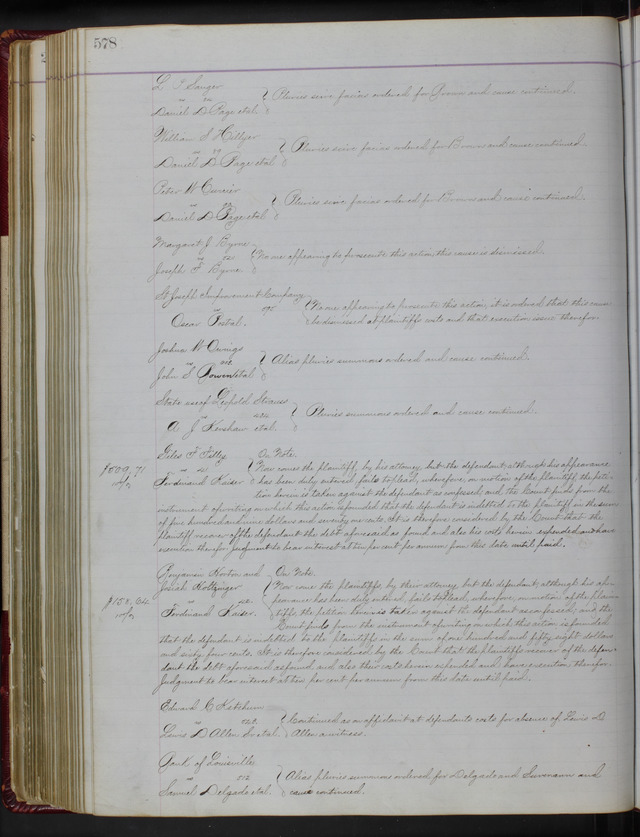 578
L P Sanger
vs
Daniel D Page etal. } Pluries scire facias ordered for Brown and cause continued.
William S Hillyer
vs 79
Daniel D Page etal } Pluries scire facias ordered for Brown and cause continued.
Peter W Currier
vs
Daniel D Page etal } Pluries scire facias ordered for Brown and cause continued.
Margaret J Byrne
vs
Joseph F Byrne } No one appearing to prosecute this action, this cause is dismissed.
St Joseph Improvement Company
vs
Oscar } No one appearing to prosecute this action, it is ordered that this cause
be dismissed at plaintiffs costs and that execution issue therefor.
Joshua W Owings
vs
John S Bowen etal } Alias pluries summons ordered and cause continued.
State use of Leopold Strauss
vs
A J Kershaw etal. } Pluries summons ordered and cause continued.
Giles F Filley On Note.
$509,71
vs 41 } Now comes the plaintiff, by his attorney, but the defendant, although his appearance
Ferdinand Kaiser has been duly entered fails to plead, wherefore, on motion of the plaintiff, the peti-
tion herein is taken against the defendant as confessed and the Court finds from the
instrument of writing on which this action is founded that the defendant is indebted to the plaintiff in the sum
of five hundred and nine dollars and seventy one cents. It is therefore considered by the Court that the
plaintiff recover of the defendant the debt aforesaid as found and also his costs herein expended and have
execution therefor Judgment to bear interest at ten per cent per annum from this date until paid.
Benjamin Horton and On Note.
Josiah Holtzinger } Now come the plaintiffs by their attorney but the defendant, although his ap-
$158,64.
vs pearance has been duly entered, fails to plead, wherefore, on motion of the plain-
Ferdinand Kaiser. tiffs the petition herein is taken against the defendant as confessed, and the
Court finds from the instrument of writing on which this action is founded
that the defendant is indebted to the plaintiffs in the sum of one hundred and fifty eight dollars
and sixty four cents. It is therefore considered by the Court that the plaintiffs recover of the defen-
dant the debt aforesaid as found and also their costs herein expended and have execution therefor
Judgment to bear interest at ten per cent per annum from this date until paid.
Edward G Ketchum
vs
Lewis D Allen etal } Continued as on affidavit at defendants costs for absence of Lewis D
Allen a witness.
Bank of Louisville
vs 512
Samuel Delgado etal. } Alias pluries summons ordered for Delgado and Swenson and
cause continued.